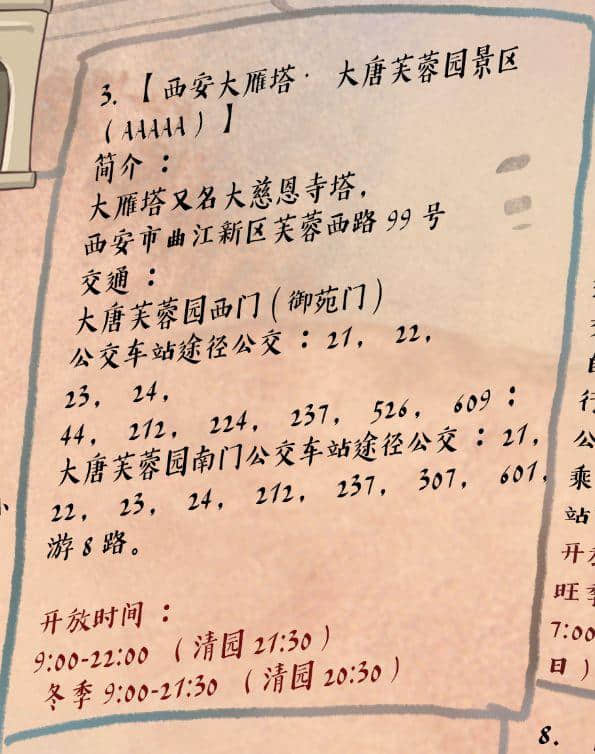 3. 【 西安大雁塔· 大唐芙蓉园景区
（AAAAA）】
简介：
大雁塔又名大慈恩寺塔，
西安市曲江新区芙蓉西路 99 号
交通：
大唐芙蓉园西门（御苑门）
公交车站途径公交：21， 22，
23， 24，
44， 212， 224， 237， 526， 609；
大唐芙蓉园南门公交车站途径公交：21，
22， 23， 24， 212， 237， 307， 601，
游 8 路。
开放时间：
9:00-22:00 （清园 21:30）
冬季 9:00-21:30 （清园 20:30）
行
公
乘
站
开
旺季
7:00
日）
8.